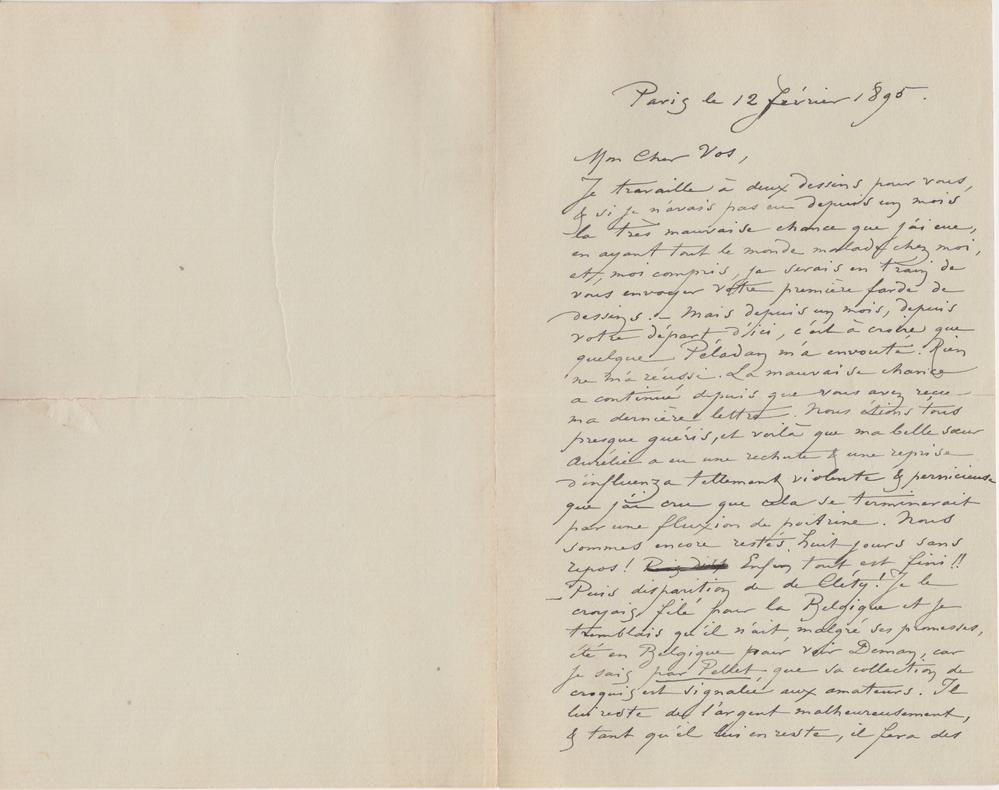 Paris le 12 février 1895.
Mon Cher Vos,
Je travaille à deux dessins pour vous,
& si je n'avais pas eu depuis un mois
la très mauvaise chance que j'ai eue,
en ayant tout le monde malade chez moi,
et, moi compris, je serais en train de
vous envoyer votre première farde de
dessins. – Mais depuis un mois, depuis
votre départ d'ici, c'est à croire que
quelque Péladan m'a envouté. Rien
ne m'a réussi. La mauvaise chance
a continué depuis que vous avez reçu
ma dernière lettre. Nous étions tous
presque guéris, et voilà que ma belle sœur
Aurélie a eu une rechute & une reprise
d'influenza tellement violente & pernicieuse
que j'ai cru que cela se terminerait
par une fluxion de poitrine. Nous
sommes encore restés huit jours sans
repos! Enfin tout est fini!!
– Puis disparition de de Cléty! Je le
croyais filé pour la Belgique et je
tremblais qu'il n'ait, malgré ses promesses,
été en Belgique pour voir Deman, car
je sais par Pellet que sa collection de
croquis est signalée aux amateurs. Il
lui reste de l'argent malheureusement,
& tant qu'il lui en reste, il fera des